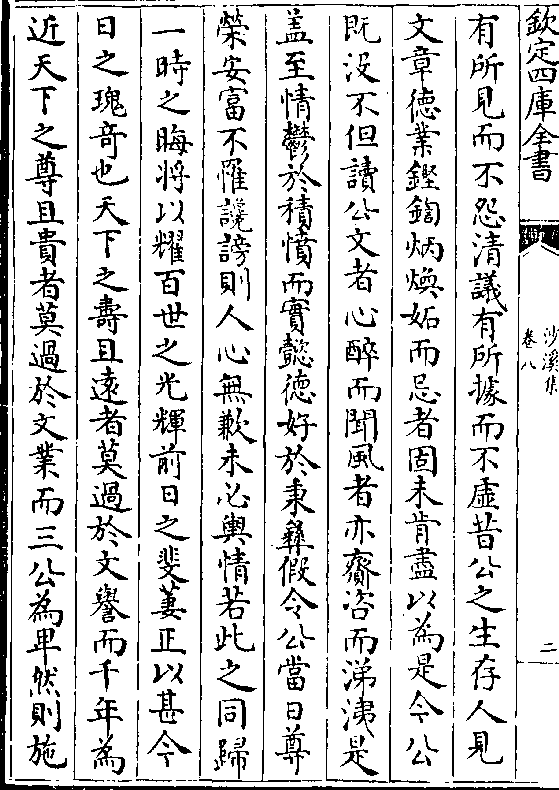 欽定四庫全書
沙溪集
卷八
二
有所見而不怨清議有所據而不虛昔公之生存人見
文章德業鏗鍧炳煥妬而忌者固未肯盡以為是今公
既没不但讀公文者心醉而聞風者亦齎咨而涕洟是
盖至情鬱於積憤而實懿德好於秉彝假令公當日尊
榮安富不罹讒謗則人心無歉未必輿情若此之同歸
一時之晦將以耀百世之光輝前日之斐萋正以甚今
日之瑰竒也天下之壽且逺者莫過於文譽而千年為
近天下之尊且貴者莫過於文業而三公為卑然則施